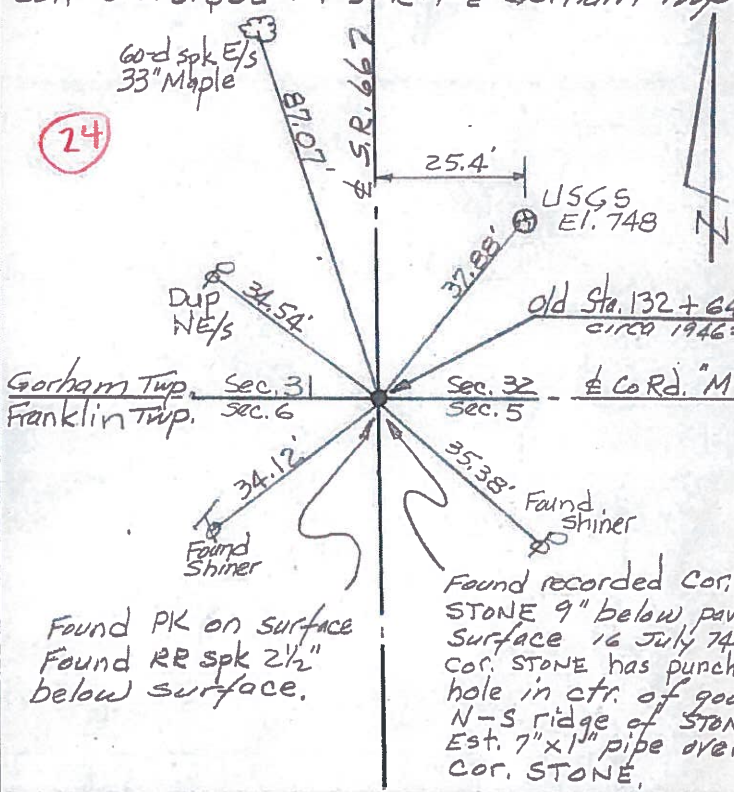 Gorham Twp
60-d spk E/s
33" Maple
24
87.07'
⅊ S.R. 667
25.4'
USGS
El. 748
N
37.88'
Dup
NE/s
34.54'
Old Sta. 132 + 64
circa 1946
Gorham Twp. Sec. 31 Sec. 32 ⅊ Co Rd. "M
Franklin Twp. Sec. 6 Sec. 5
34.12'
35.38'
Found
Shiner
Found
Shiner
Found PK on surface
Found RR spk 2½"
below surface.
Found recorded Cor.
STONE 9" below pav
Surface 16 July 74
cor. STONE has punch
hole in ctr. of goo
N-S ridge of STON
Est. 7" x 1" pipe over
Cor. STONE.